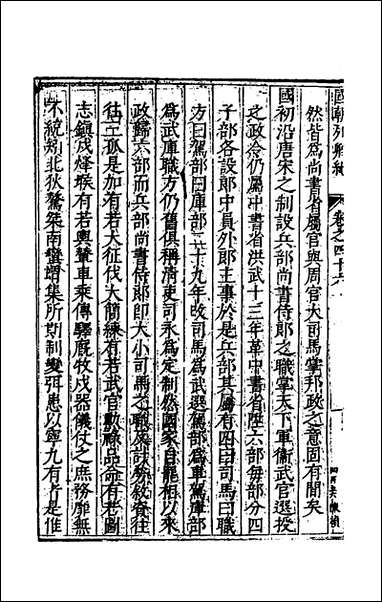 國朝列卿紀 卷之四十六
然皆爲尚書省屬官與周官大司馬掌邦政之意固有間矣
國初沿唐宋之制設兵部尚書侍郎之職掌天下軍衛武官選授
之政令仍屬中書省洪武十三年革中書省陞六部每部分四
子部各設郎中員外郎主事於是兵部其屬有四曰司馬曰職
方曰駕部曰庫部二十九年改司馬爲武選駕部爲車駕庫部
爲武庫職方仍舊俱稱清吏司永爲定制然國家自罷相以來
政歸六部而兵部尚書侍郎即大小司馬之職
徃三孤是加有若大征伐大簡練有若武官勳祿品命有若圖
志鎮戍烽堠有若輿輦車乘傳驛厩牧戎器儀仗之庶務靡無
不統矧北狄驁桀南蠻增集所期制變弭患以寧九有亣是惟